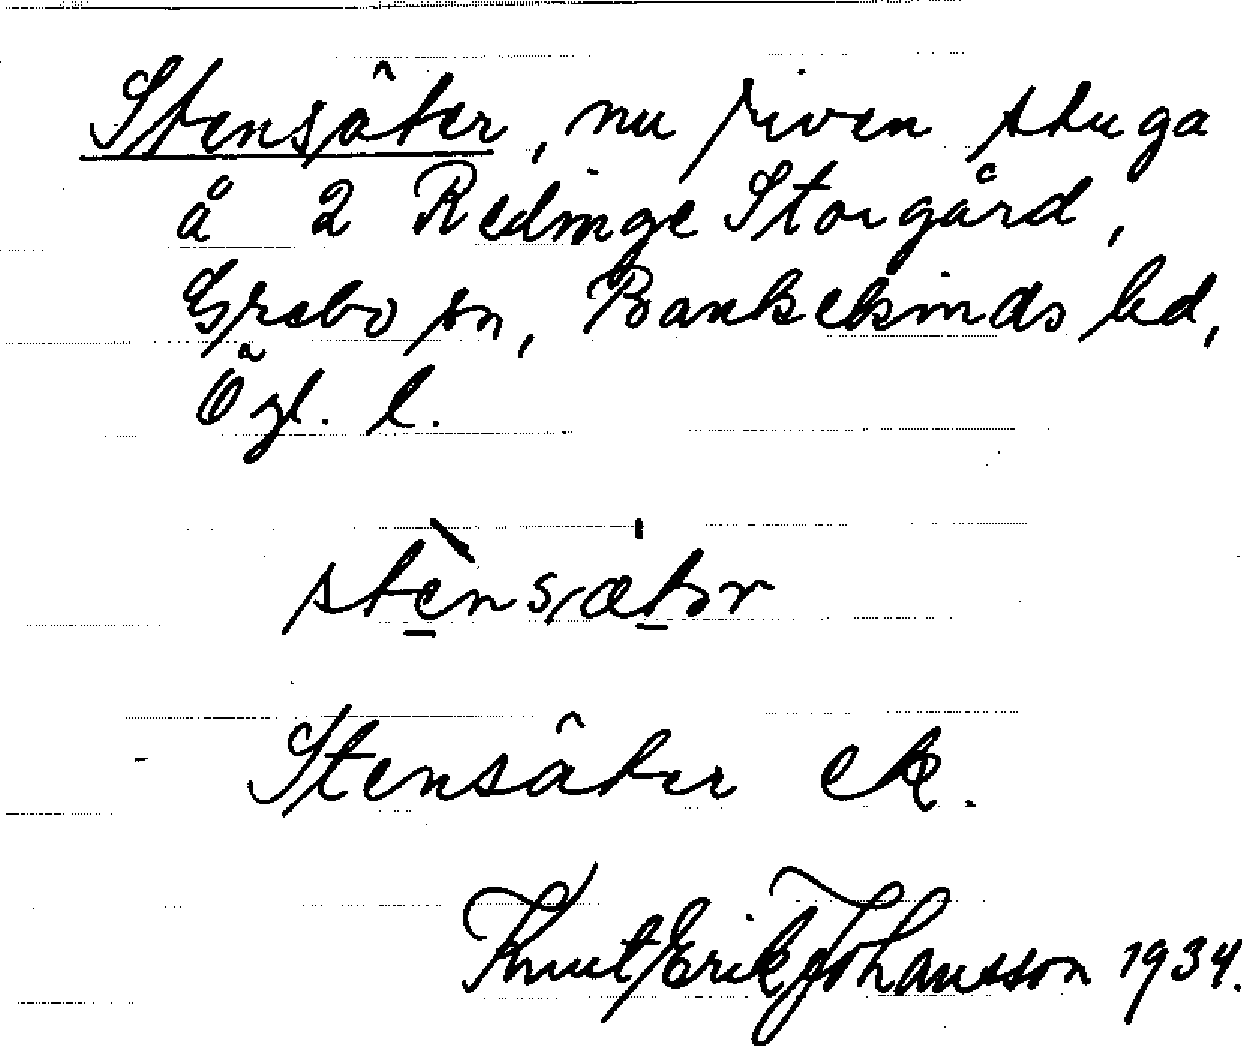 Stensäter, nu riven stuga
å 2 Redinge Storgård,
Grebo sn, Bankekinds hd,
Ögl. l.
stènsæ̀tər
Stensäter ek.
Knut Erik Johansson 1934.